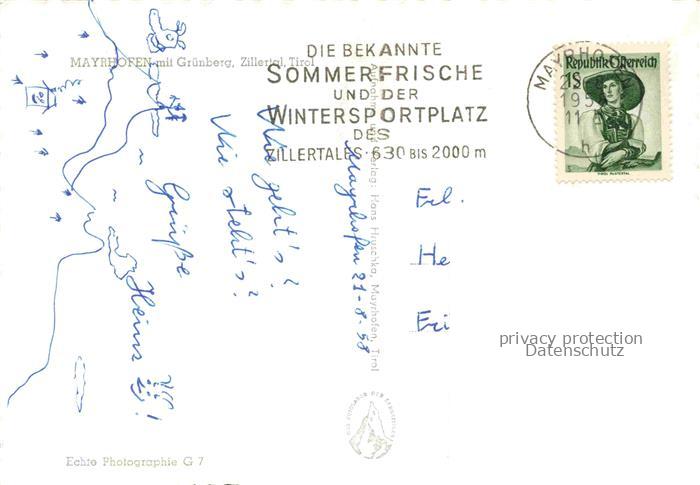 MAYRHOFEN mit Grünberg, Zillertal, Tirol
DIE BEKANNTE
SOMMERFRISCHE
UND DER
WINTERSPORTPLATZ
DES
ZILLERTALES · 630 BIS 2000 m
MAYRHO
195
11
h
Republik Österreich
1S
TIROL PUSTERTAL
Mayrhofen 21-8-58
Wie geht's?
Wie steht's?
Grüße
Heinz
Erl.
He
Eri
Verlag: Hans Hruschka, Mayrhofen, Tirol
privacy protection
Datenschutz
Echte Photographie G 7